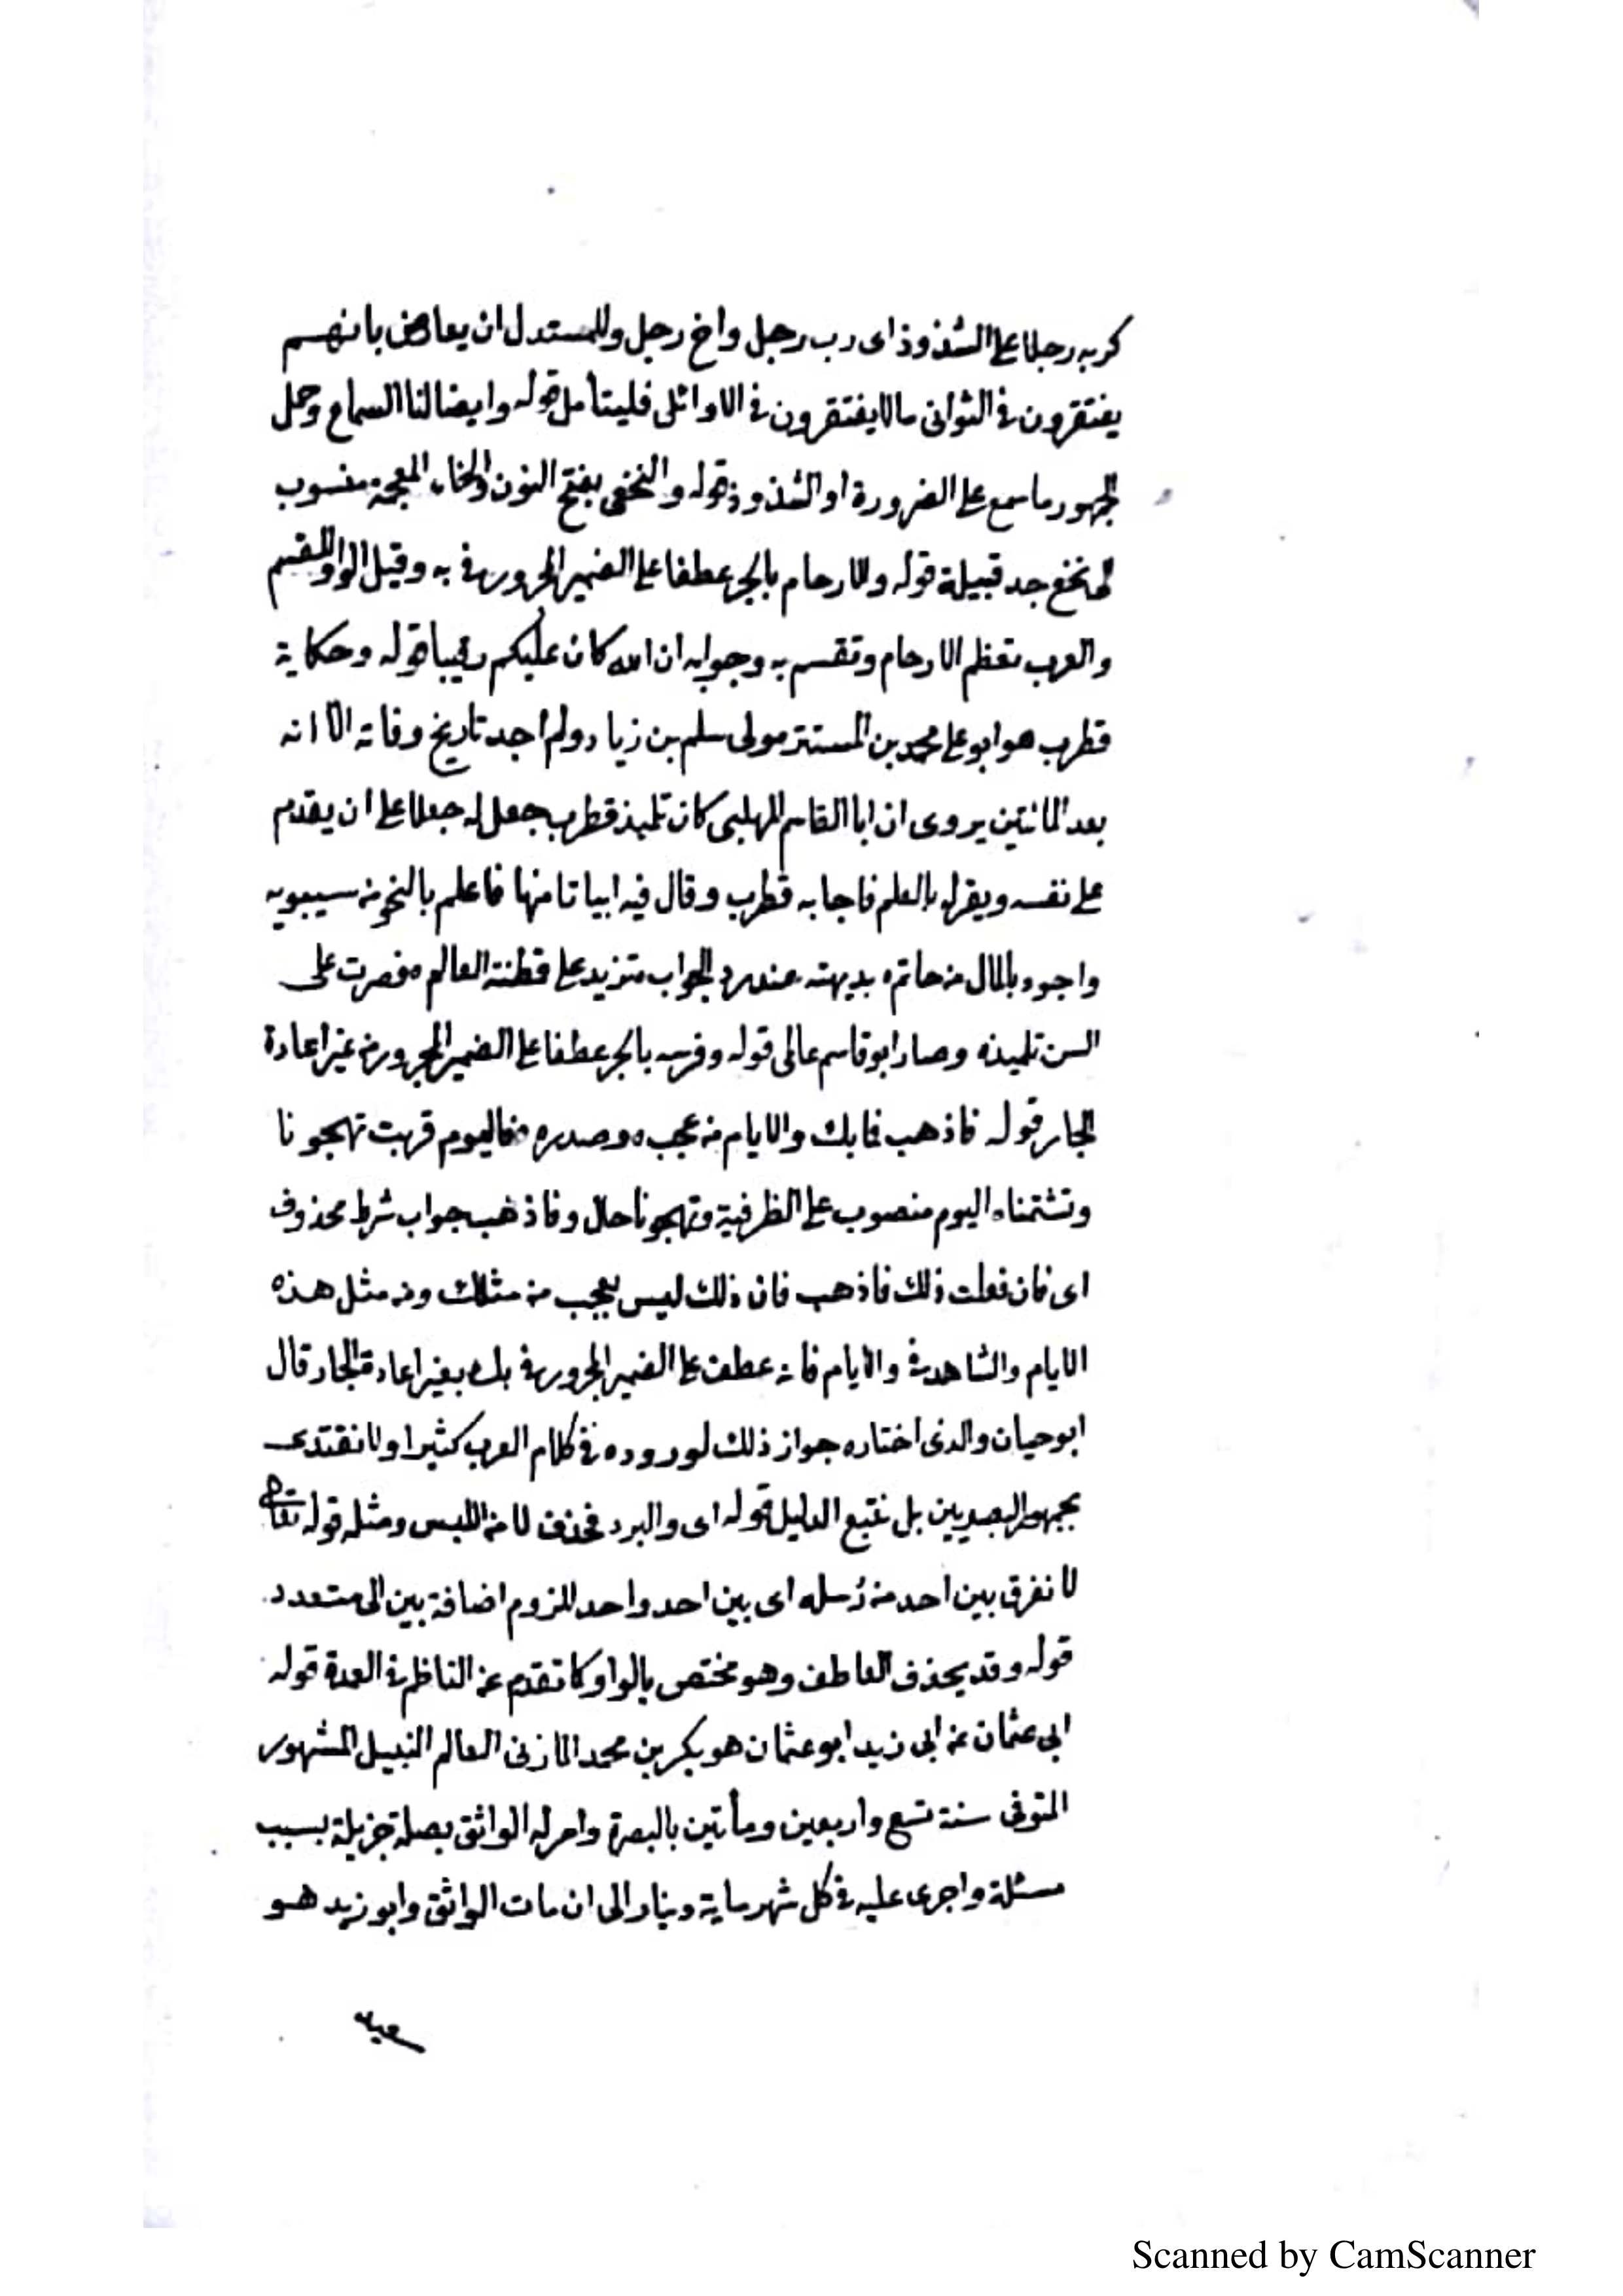 كربه رجلا على الشذوذ اى رب رجل واخ رجل وللمستدل ان يعارض بانهم
يفتقرون فى الثوانى مالا يفتقرون فى الاوائل فليتأمل قوله وايضا لنا السماع وحمل
الجمهور ما سمع على الضرورة او الشذوذ قوله والنخعى بفتح النون والخاء المعجمة منسوب
لنخع جد قبيلة قوله والارحام بالجر عطفا على الضمير المجرور فى به وقيل الواو للقسم
والعرب تعظم الارحام وتقسم به وجوابه ان الله كان عليكم رقيبا قوله وحكاية
قطرب هو ابو على محمد بن المستنتر مولى سلم بن زياد ولم اجد تاريخ وفاته الا انه
بعد المائتين يروى ان ابا القاسم المهلبى كان تلميذ قطرب جعل له جعلا على ان يقدم
على نفسه ويقر له بالعلم فاجابه قطرب وقال فيه ابياتا منها فاعلم بالنحو من سيبويه
واجود بالمال من حاتم، بديهته عند رد الجواب، تزيد على فطنة العالم، فصرت على
السن تلميذه وصار ابو قاسم عالى قوله وفرسه بالجر عطفا على الضمير المجرور من غير اعادة
الجار قوله فاذهب فما بك والايام من عجب، وصدره، فاليوم قربت تهجونا
وتشتمنا، اليوم منصوب على الظرفية وتهجونا حال وفاذهب جواب شرط محذوف
اى فان فعلت ذلك فاذهب فان ذلك ليس بعجب من مثلك ومن مثل هذه
الايام والشاهد فى والايام فانه عطف على الضمير المجرور فى بك بغير اعادة الجار قال
ابو حيان والذى اختاره جواز ذلك لوروده فى كلام العرب كثيرا ولا نقتدى
بجمهور البصريين بل نتبع الدليل قوله اى والبرد فحذف لامن اللبس ومثله قوله تعالى
لا نفرق بين احد من رسله اى بين احد واحد للزوم اضافة بين الى متعدد
قوله وقد يحذف العاطف وهو مختص بالواو كما تقدم عن الناظم فى العمدة قوله
ابى عثمان عن ابى زيد ابو عثمان هو بكر بن محمد المازنى العالم النبيل المشهور
المتوفى سنة تسع واربعين ومأتين بالبصرة وامر له الواثق بصلة جزيلة بسبب
مسئلة واجرى عليه فى كل شهر ماية دينار الى ان مات الواثق وابو زيد هو
Scanned by CamScanner